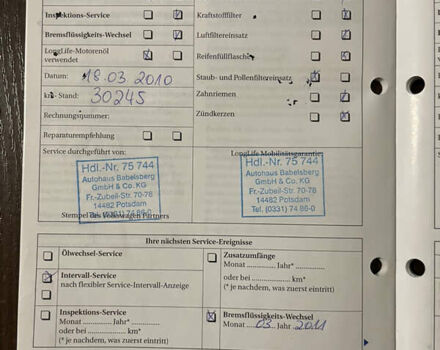 Inspektions-Service
Bremsflüssigkeits-Wechsel
LongLife-Motorenöl
verwendet
Datum: 18.03 2010
km- Stand: 30245
Rechnungsnummer:
Reparaturempfehlung
Service durchgeführt von:
Hdl.-Nr. 75 744
Autohaus Babelsberg
GmbH & Co. KG
Fr.-Zubeil-Str. 70-78
14482 Potsdam
Tel. (0331) 74 86-0
Stempel des Volkswagen Partners
Kraftstofffilter
Luftfiltereinsatz
Reifenfüllflasche
Staub- und Pollenfiltereinsatz
Zahnriemen
Zündkerzen
LongLife Mobilitätsgarantie:
Hdl.-Nr. 75 744
Autohaus Babelsberg
GmbH & Co. KG
Fr.-Zubeil-Str. 70-78
14482 Potsdam
Tel. (0331) 74 86-0
Ihre nächsten Service-Ereignisse
Ölwechsel-Service
Intervall-Service
nach flexibler Service-Intervall-Anzeige
Inspektions-Service
Monat ............ Jahr* ............
oder bei ............ km*
Zusatzumfänge
Monat ............ Jahr* ............
oder bei ............ km*
(* je nachdem, was zuerst eintritt)
Bremsflüssigkeits-Wechsel
Monat 03. Jahr 2011
(* je nachdem, was zuerst eintritt)